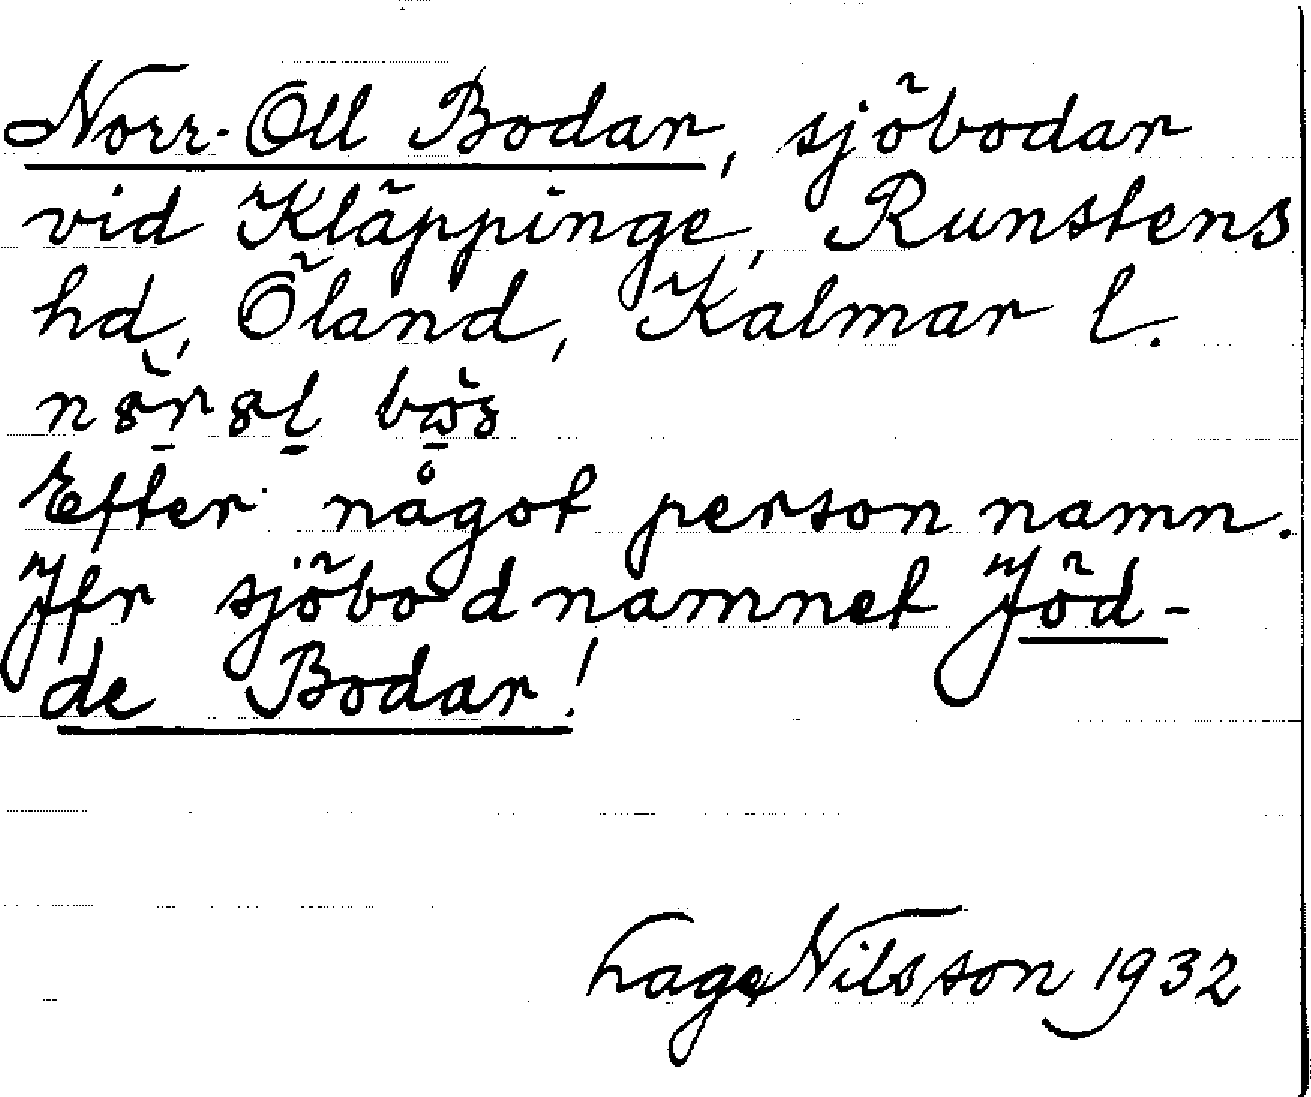 Norr-Oll Bodar, sjöbodar
vid Kläppinge, Runstens
hd, Öland, Kalmar l.
Efter något personnamn.
Jfr sjöbodnamnet Jöd-
de Bodar!
Lage Nilsson 1932